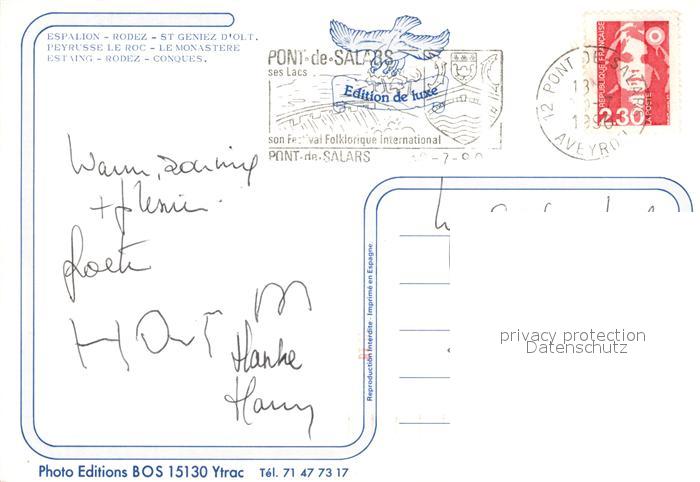 ESPALION - RODEZ - ST GENIEZ D'OLT.
PEYRUSSE LE ROC - LE MONASTERE
ESTAING - RODEZ - CONQUES.
PONT-de-SALARS
ses Lacs
Edition de luxe
son Festival Folklorique International
PONT-de-SALARS
12 PONT DE SALARS
AVEYRON
REPUBLIQUE FRANCAISE
LA POSTE
2,30
Warm, zonnig
+
Hanke
Harry
Reproduction Interdite - Imprimé en Espagne
privacy protection
Datenschutz
Photo Editions BOS 15130 Ytrac Tél. 71 47 73 17